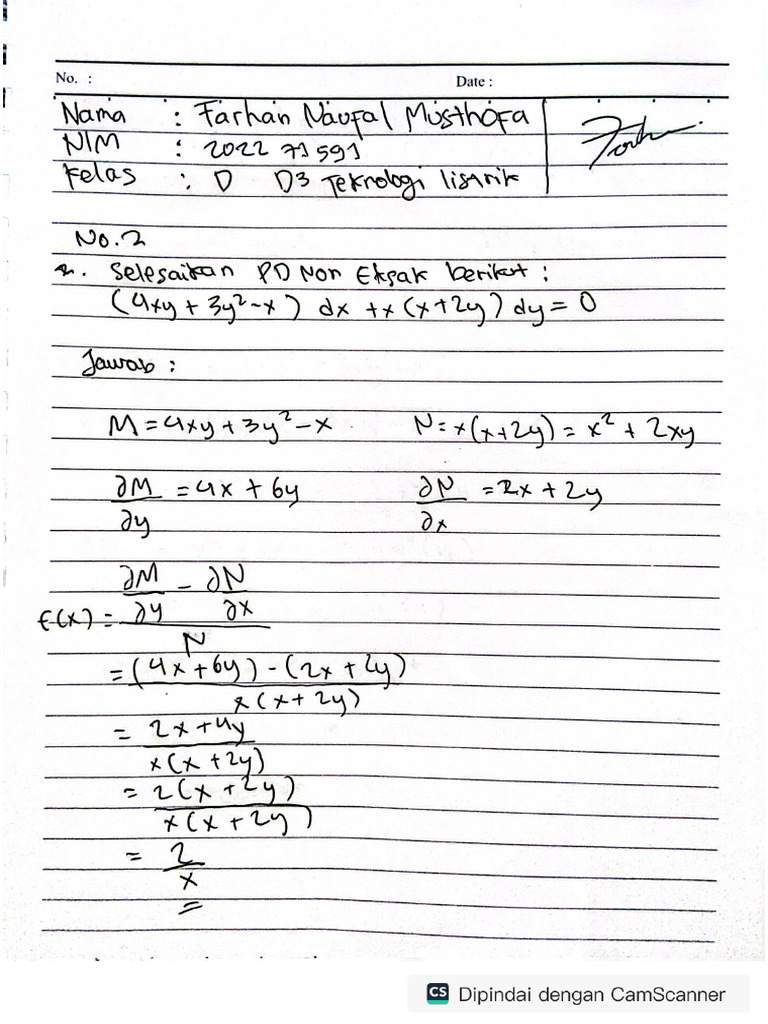 No. : Date :
Nama : Farhan Naufal Musthofa
NIM : 2022 71 591
Kelas : D D3 Teknologi listrik
No. 2
2. Selesaikan PD Non Eksak berikut :
(4xy + 3y² - x) dx + x (x + 2y) dy = 0
Jawab :
M = 4xy + 3y² - x N = x(x+2y) = x² + 2xy
∂M/∂y = 4x + 6y ∂N/∂x = 2x + 2y
F(x) = (∂M/∂y - ∂N/∂x)/N
= (4x + 6y) - (2x + 2y)
x (x + 2y)
= 2x + 4y
x(x + 2y)
= 2(x + 2y)
x(x + 2y)
= 2
x
=
CS Dipindai dengan CamScanner